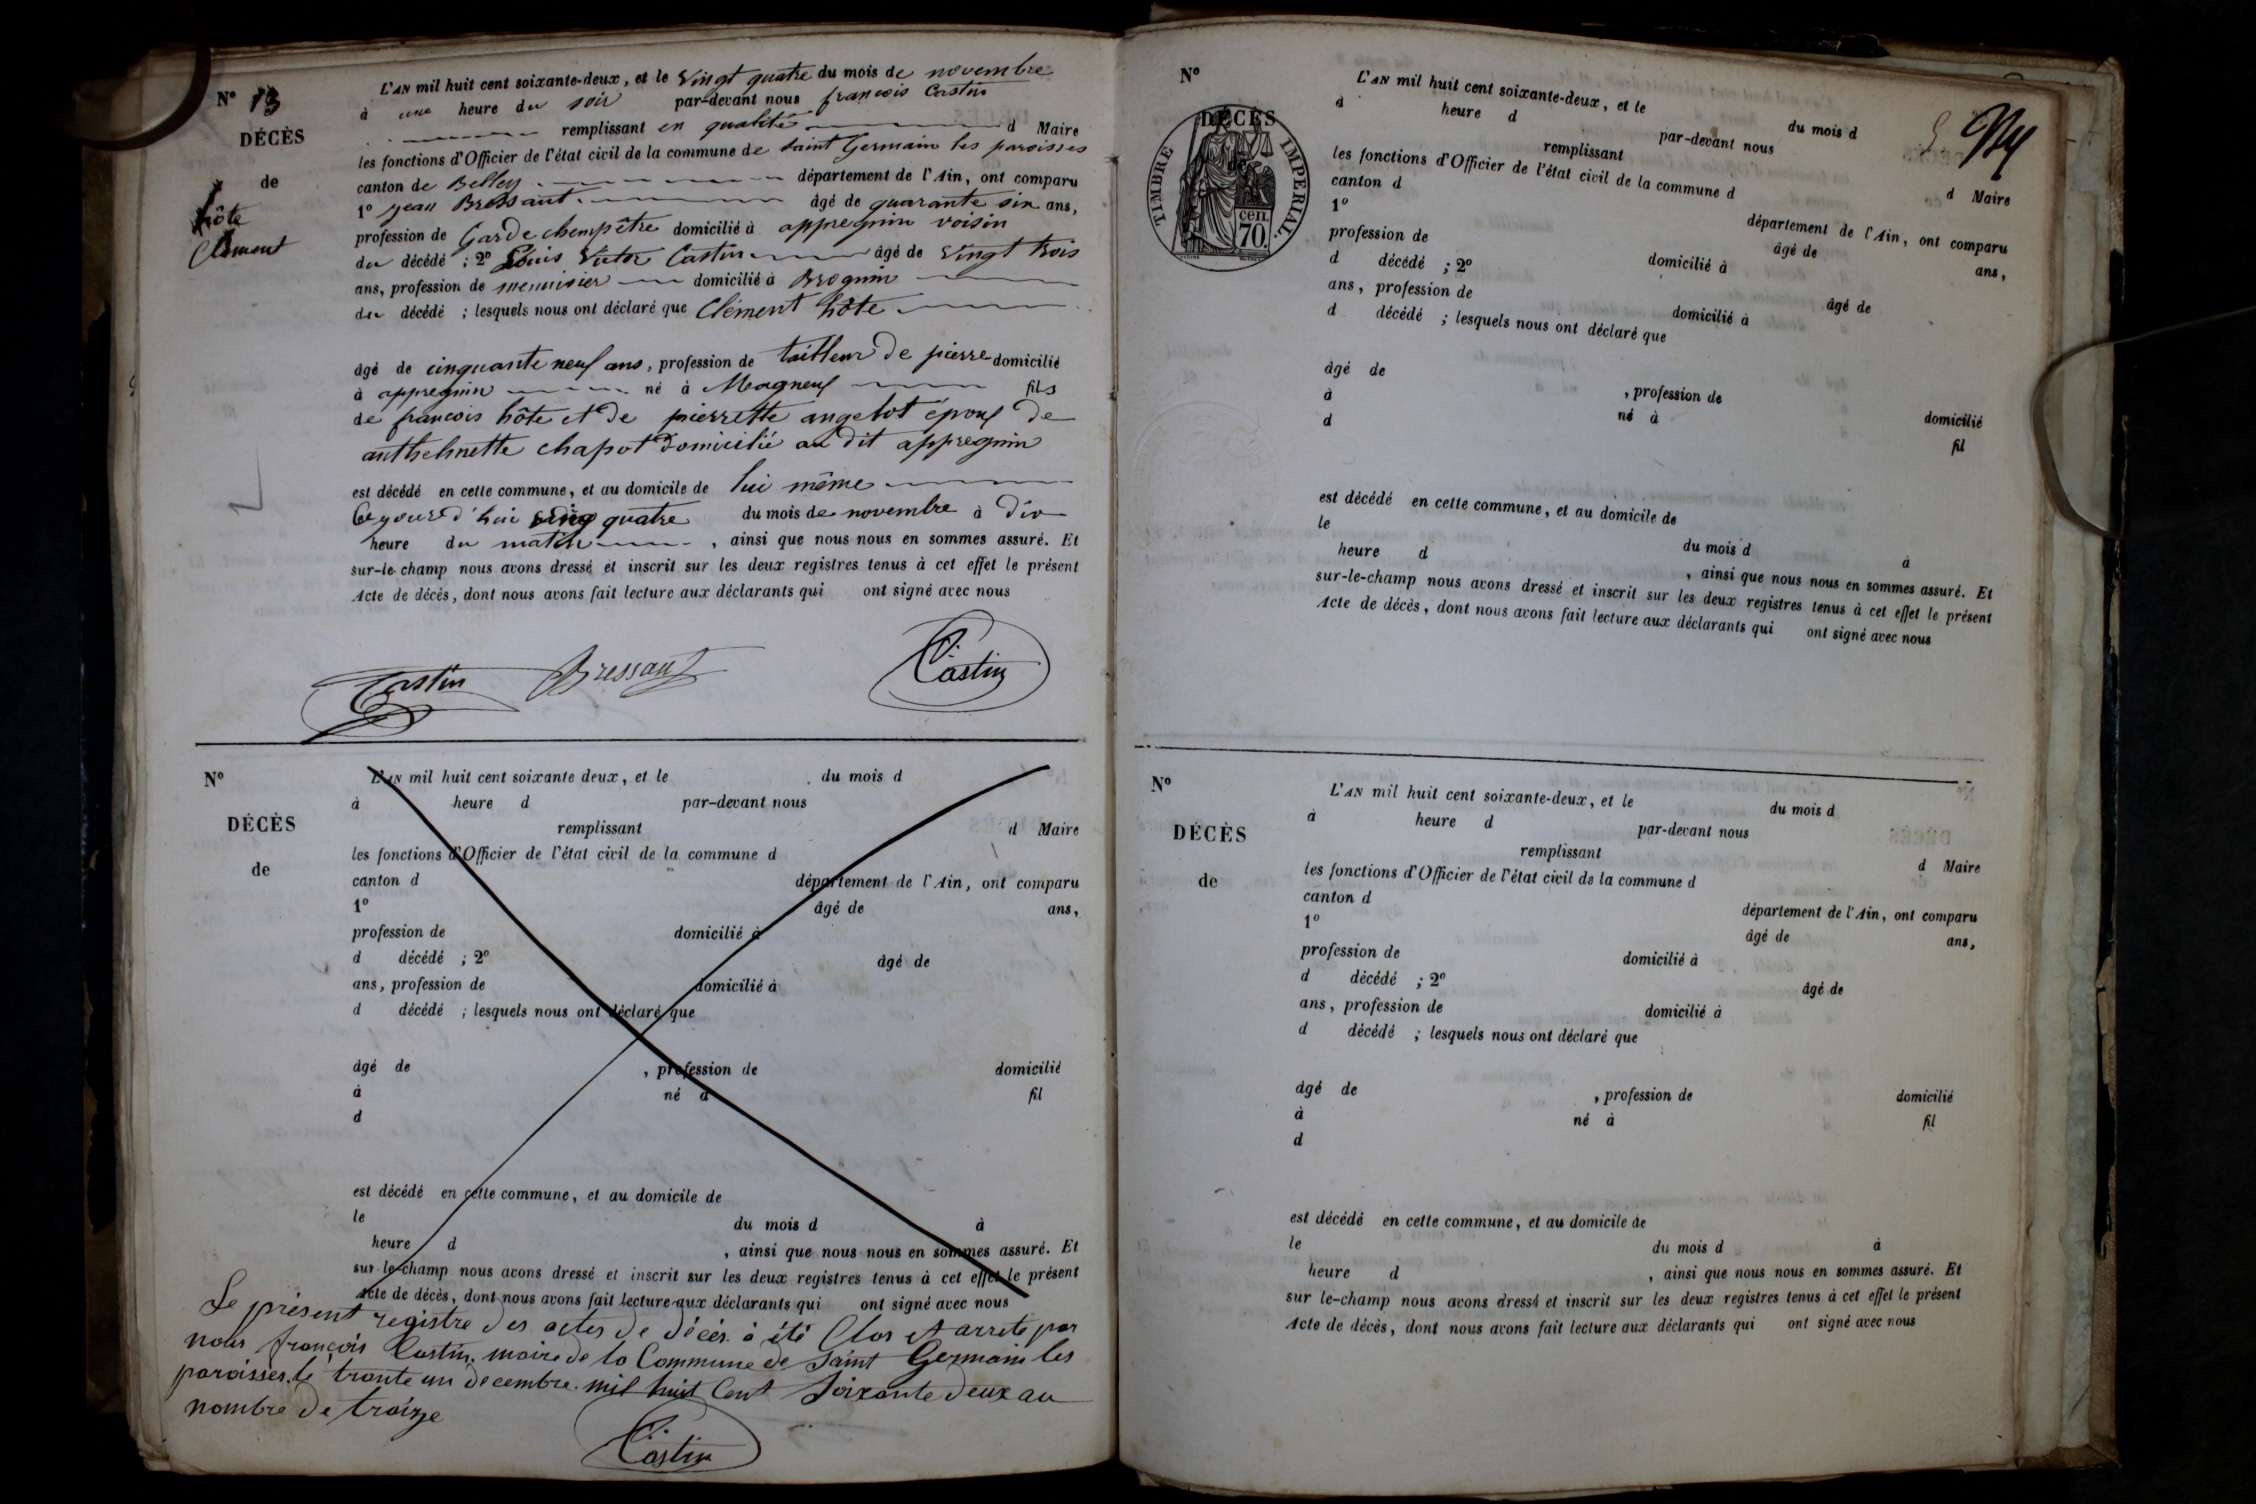 N° 13
DÉCÈS
de
hôte
Clément
L'AN mil huit cent soixante-deux, et le Vingt quatre du mois de novembre
à une heure du soir par-devant nous françois Castin
remplissant en qualité d Maire
les fonctions d'Officier de l'état civil de la commune de Saint Germain les paroisses
canton de Belley département de l'Ain, ont comparu
1° jean Bressaut âgé de quarante six ans,
profession de Garde chempêtre domicilié à appregnin voisin
du décédé ; 2° Louis Victor Castin âgé de Vingt trois
ans, profession de menuisier domicilié à Brognin
du décédé ; lesquels nous ont déclaré que Clément hôte
âgé de cinquante neuf ans, profession de tailleur de pierre domicilié
à appregnin né à Magneuf fils
de françois hôte et de pierrette angelot époux de
anthelmette chapot domicilié au dit appregnin
est décédé en cette commune, et au domicile de lui même
Ce jourd'hui quatre du mois de novembre à dix
heure du matin , ainsi que nous nous en sommes assuré. Et
sur-le-champ nous avons dressé et inscrit sur les deux registres tenus à cet effet le présent
Acte de décès, dont nous avons fait lecture aux déclarants qui ont signé avec nous
Castin Bressaut Castin
N°
DÉCÈS
de
L'AN mil huit cent soixante deux, et le du mois d
à heure d par-devant nous
remplissant d Maire
les fonctions d'Officier de l'état civil de la commune d
canton d département de l'Ain, ont comparu
1° âgé de ans,
profession de domicilié à
d décédé ; 2° âgé de
ans, profession de domicilié à
d décédé ; lesquels nous ont déclaré que
âgé de , profession de domicilié
à né à fil
d
est décédé en cette commune, et au domicile de
le du mois d à
heure d , ainsi que nous nous en sommes assuré. Et
sur-le-champ nous avons dressé et inscrit sur les deux registres tenus à cet effet le présent
Acte de décès, dont nous avons fait lecture aux déclarants qui ont signé avec nous
Le présent registre des actes de décés à été Clos et arrete par
nous françois Castin. maire de la Commune de Saint Germain les
paroisses. le trante un decembre. mil huit Cent Soixante deux au
nombre de traize
Castin
N°
DÉCÈS
TIMBRE IMPERIAL.
cen.
70.
L'AN mil huit cent soixante-deux, et le du mois d
à heure d par-devant nous
remplissant d Maire
les fonctions d'Officier de l'état civil de la commune d
canton d département de l'Ain, ont comparu
1° âgé de ans,
profession de domicilié à
d décédé ; 2° âgé de
ans, profession de domicilié à
d décédé ; lesquels nous ont déclaré que
âgé de , profession de domicilié
à né à fil
d
est décédé en cette commune, et au domicile de
le du mois d à
heure d , ainsi que nous nous en sommes assuré. Et
sur-le-champ nous avons dressé et inscrit sur les deux registres tenus à cet effet le présent
Acte de décès, dont nous avons fait lecture aux déclarants qui ont signé avec nous
N°
DÉCÈS
de
L'AN mil huit cent soixante-deux, et le du mois d
à heure d par-devant nous
remplissant d Maire
les fonctions d'Officier de l'état civil de la commune d
canton d département de l'Ain, ont comparu
1° âgé de ans,
profession de domicilié à
d décédé ; 2° âgé de
ans, profession de domicilié à
d décédé ; lesquels nous ont déclaré que
âgé de , profession de domicilié
à né à fil
d
est décédé en cette commune, et au domicile de
le du mois d à
heure d , ainsi que nous nous en sommes assuré. Et
sur le-champ nous avons dressé et inscrit sur les deux registres tenus à cet effet le présent
Acte de décès, dont nous avons fait lecture aux déclarants qui ont signé avec nous